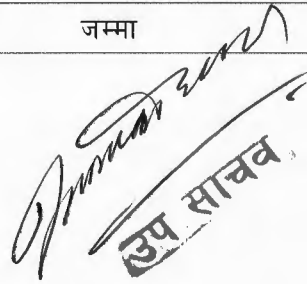 जम्मा
उप सचिव